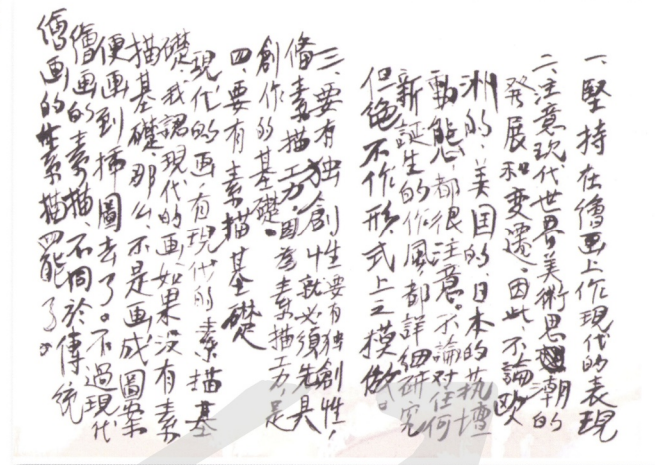 一、堅持在繪画上作現代的表現
二、注意現代世界美術思潮的
發展和變遷。因此、不論歐
洲的、美国的、日本的芸壇
動態、都很注意。不論对任何
新誕生的作風都詳細研究
但絶不作形式上之模倣。
三、要有独創性要有独創性，
就必須先具
備素描工力。因為素描工力，是
創作的基礎。
四、要有素描基礎
現代的画，有現代的素描基
礎、我認現代的画如果没有素
描基礎、那么、不是画成圖案
便画到揷圖去了。不過現代
繪画的素描、不同於傳統
繪画的素描四能了。